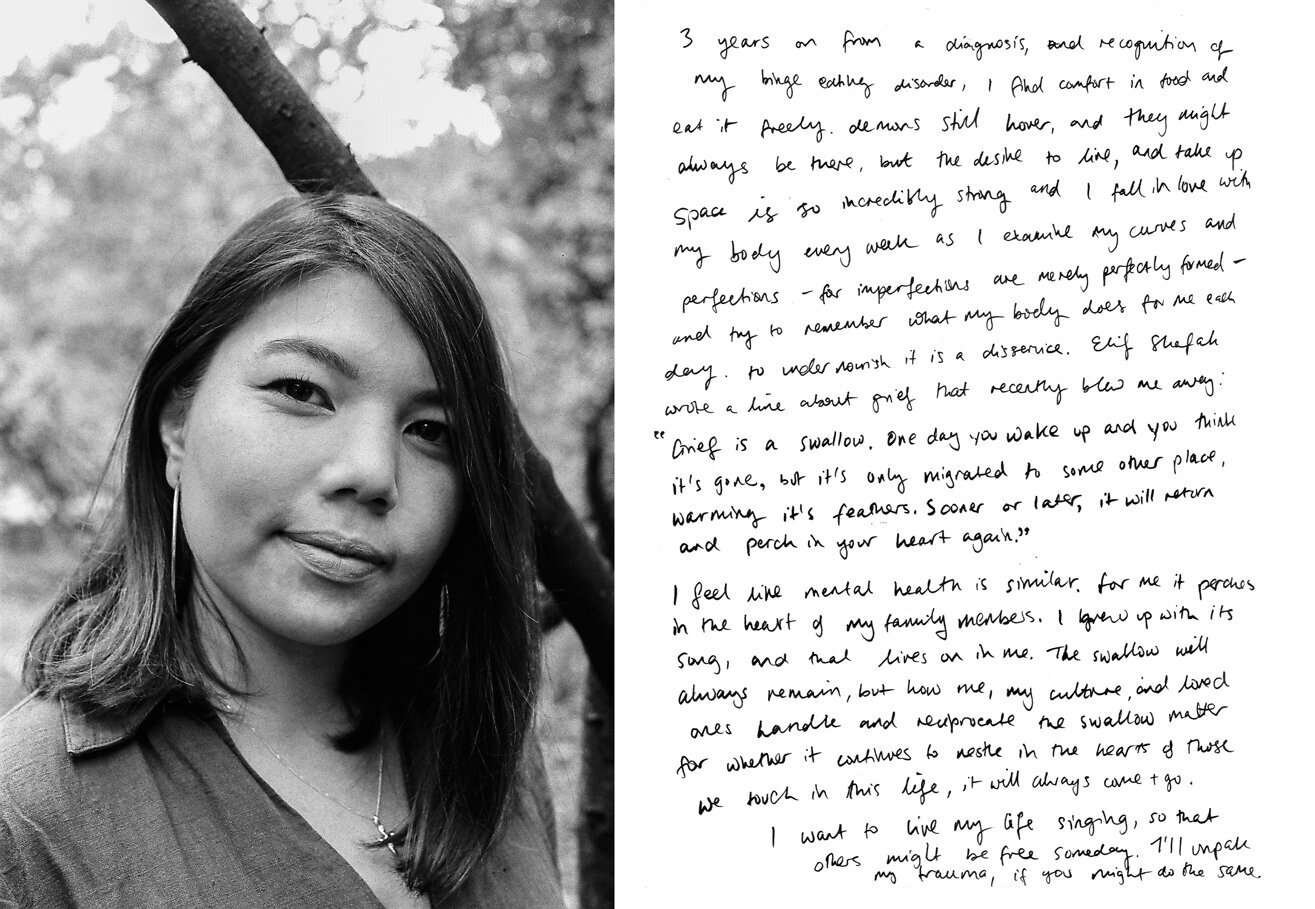 3 years on from a diagnosis, and recognition of
my binge eating disorder, I find comfort in food and
eat it freely. demons still hover, and they might
always be there, but the desire to live, and take up
space is so incredibly strong and I fall in love with
my body every week as I examine my curves and
perfections - for imperfections are merely perfectly formed -
and try to remember what my body does for me each
day. to under nourish it is a disservice. Elif Shafak
wrote a line about grief that recently blew me away:
"Grief is a swallow. One day you wake up and you think
it's gone, but it's only migrated to some other place,
warming it's feathers. Sooner or later, it will return
and perch in your heart again."
I feel like mental health is similar. for me it perches
in the heart of my family members. I grew up with its
song, and that lives on in me. The swallow will
always remain, but how me, my culture, and loved
ones handle and reciprocate the swallow matter
for whether it continues to nestle in the hearts of those
we touch in this life, it will always come + go.
I want to live my life singing, so that
others might be free someday. I'll unpack
my trauma, if you might do the same.